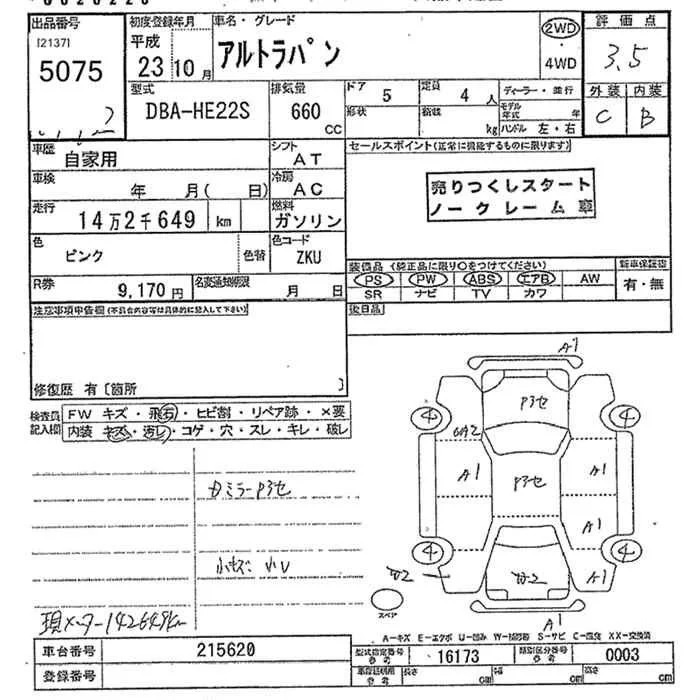 出品番号 初度登録年月 車名・グレード 2WD ・ 4WD 評価点
[2137] 平成 アルトラパン 3.5
5075 23年10月
型式 排気量 ドア 5 定員 4人 ディーラー・並行 外装 内装
DBA-HE22S 660 CC 形状 積載 kg モデル年式 年 ハンドル 左・右 C B
車歴 自家用 シフト AT セールスポイント(正常に機能するものに限ります)
車検 年 月( 日) 冷房 AC 売りつくしスタート
走行 14万2千649 km 燃料 ガソリン ノークレーム車
色 ピンク 色替 色コード ZKU
装備品 (純正品に限り○をつけてください) 新車保証書
R券 9,170円 名変通知期限 月 日 PS PW ABS エアB AW 有・無
SR ナビ TV カワ
注意事項申告欄(不具合内容等は具体的に記入して下さい) 後日品
修復歴 有〔箇所 〕
検査員記入欄 FW キズ・飛石・ヒビ割・リペア跡・×要
内装 キズ・汚レ・コゲ・穴・スレ・キレ・破レ
A1
P3セ
4 4
A1 P3セ A1
A1
4 4
A1
A1
スペア
現メーター142649km
A-キズ E-エクボ U-凹み W-補修跡 S-サビ C-腐食 XX-交換済
車台番号 215620 型式指定番号 参考 16173 類別区分番号 参考 0003
登録番号 長さ cm 幅 cm 高さ cm